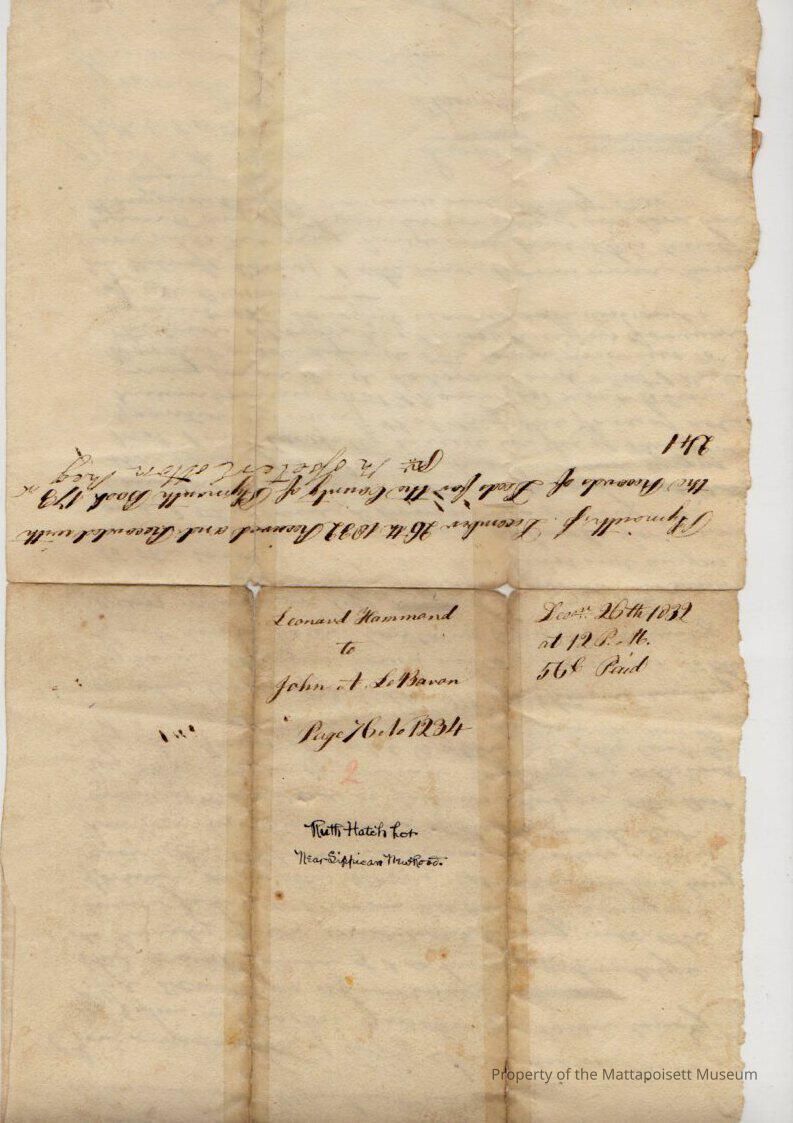 Plymouth ss. December 26th 1832 Received and Recorded with
the Records of Deeds for the County of Plymouth Book 173
241
Leonard Hammond
to
John A LeBaron
Page 76. No 1234
2
Ruth Hatch Lot
Near Sippican New Road.
Decr. 26th 1832
at 12 P.M.
56c Paid
Property of the Mattapoisett Museum